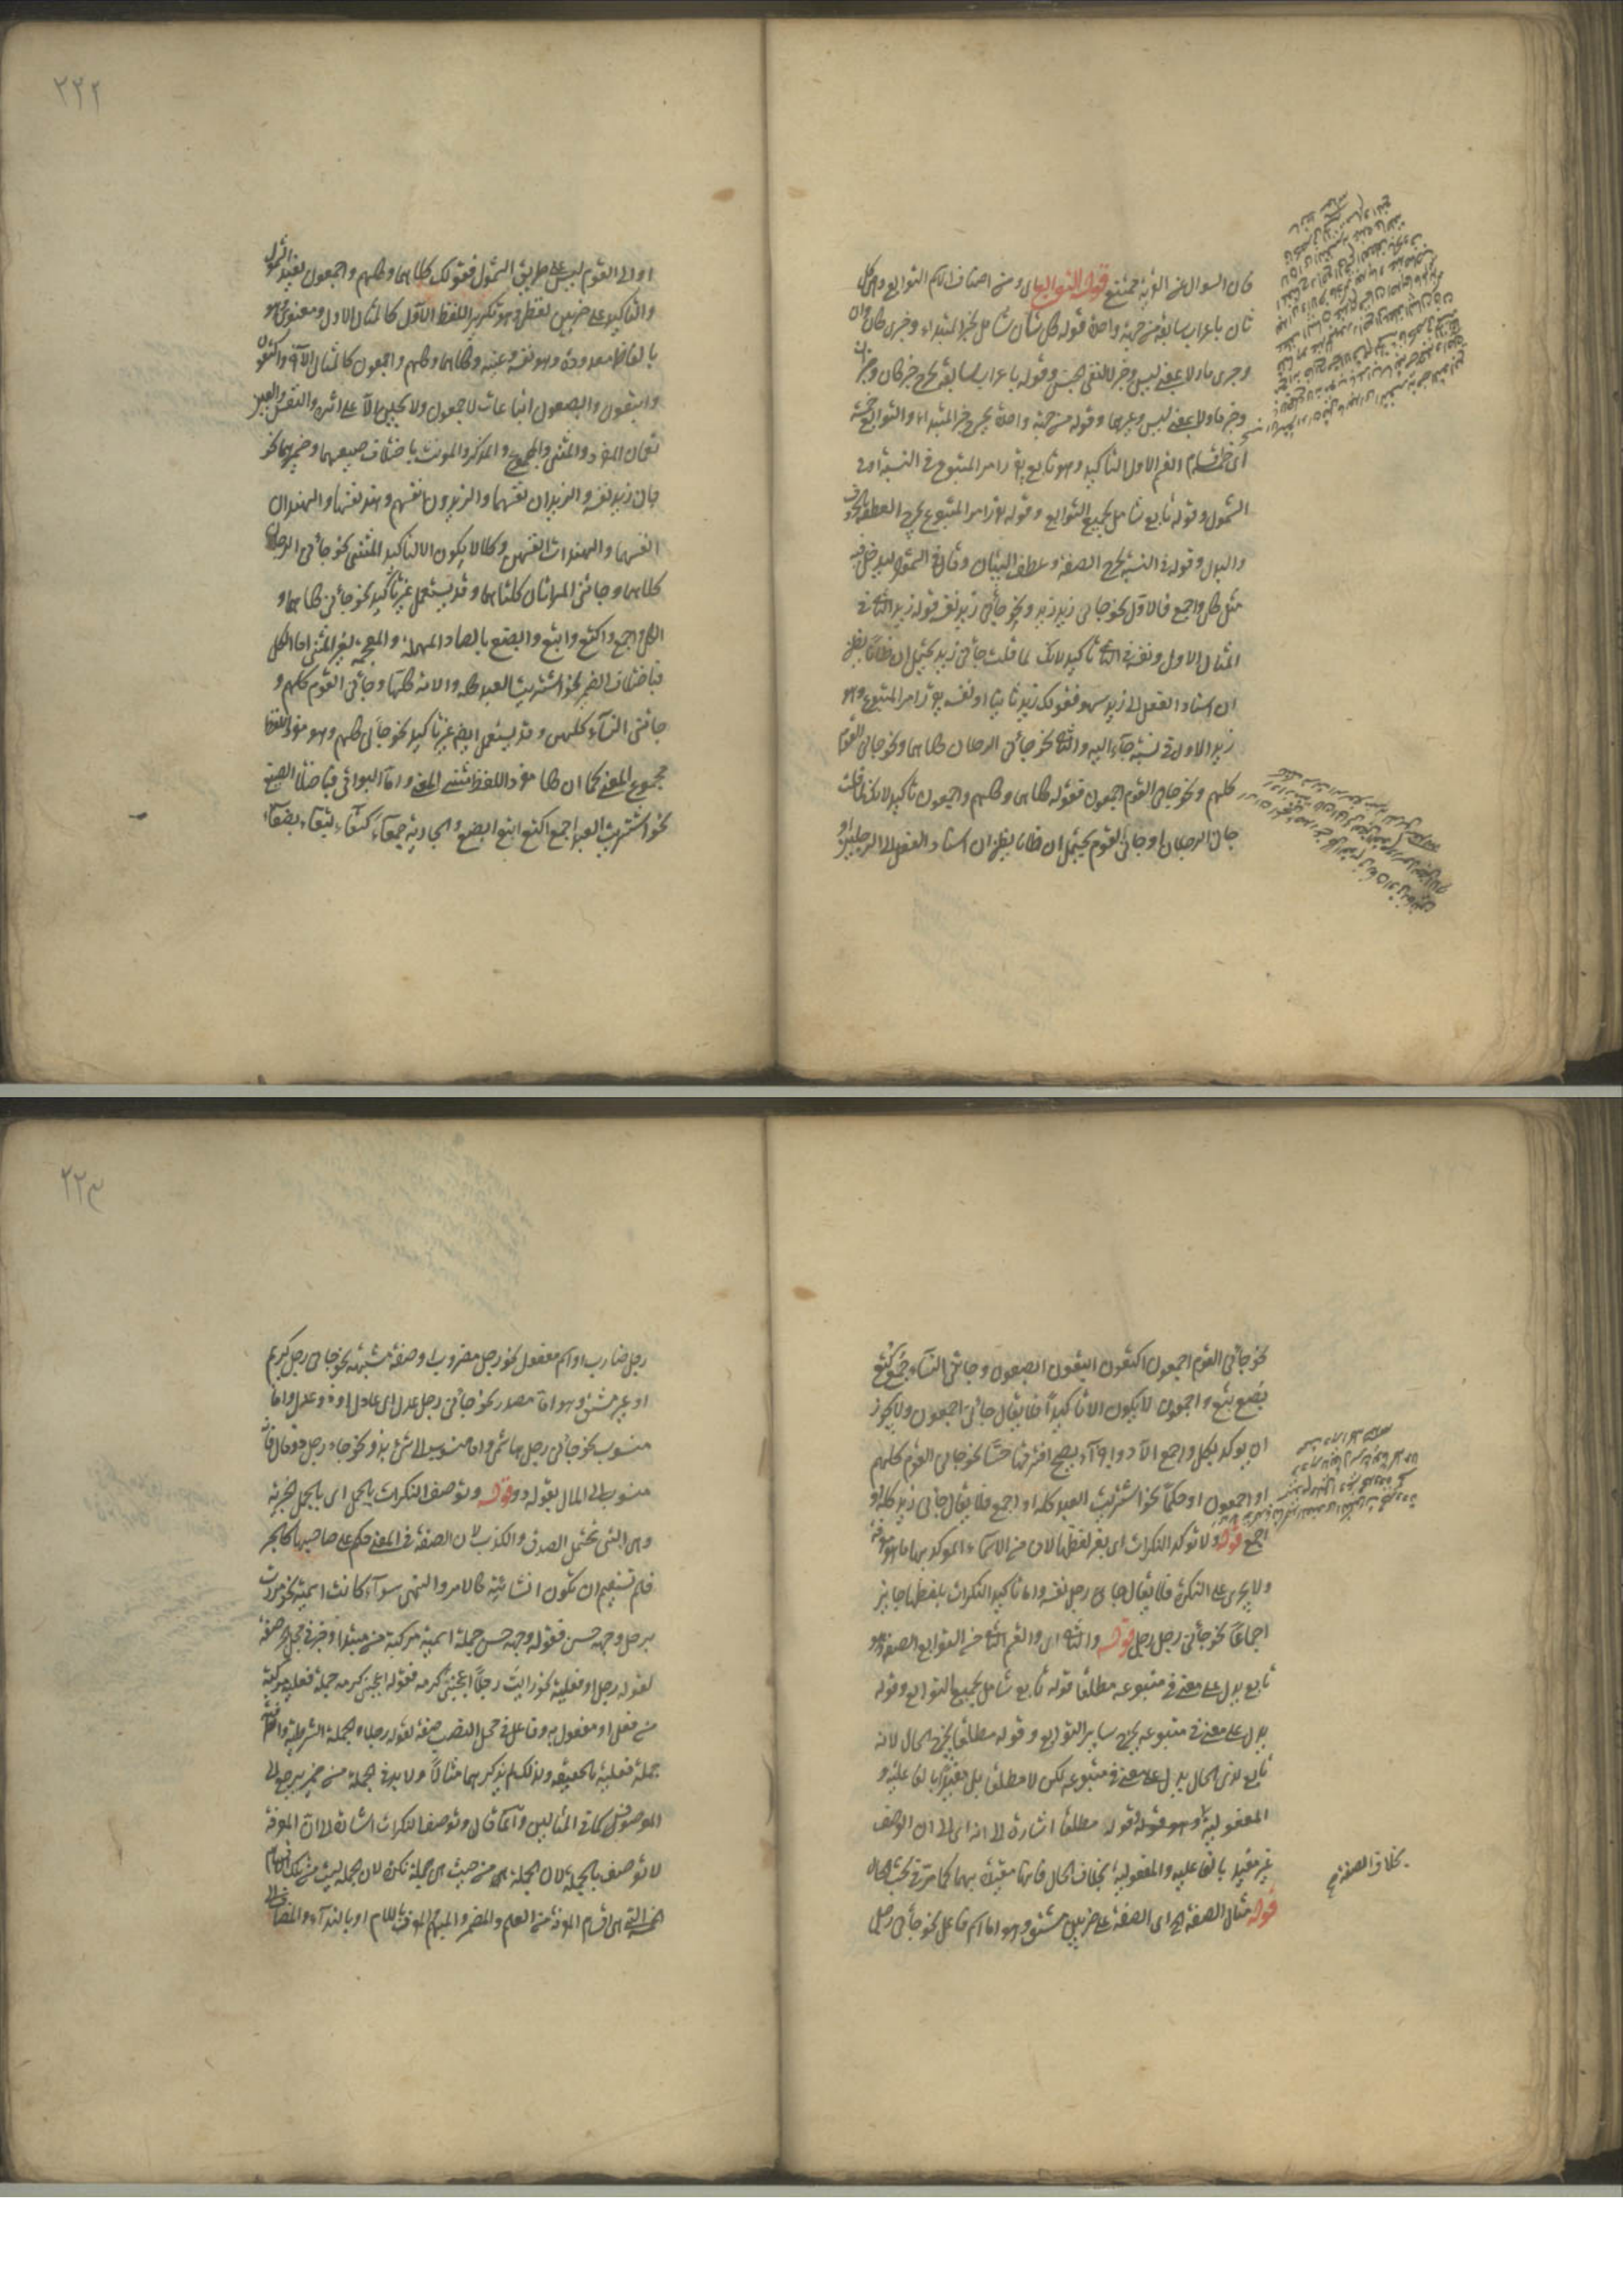 فان السوال عن القرية ممتنع قوله التوابع اى ومن اصناف الاسم التوابع وهى كل
ثان باعراب سابقه من جهة واحدة قوله كل ثان شامل لخبر المبتداء وخبرى كان وان
وخبرى ما ولا بمعنى ليس وخبر لا لنفى الجنس وقوله باعراب سابقه يخرج خبر كان وخبر ان
وخبر ما ولا بمعنى ليس وغيرهما وقوله من جهة واحدة يخرج خبر المبتداء والتوابع خمسة
اى خمسة اقسام القسم الاول التاكيد وهو تابع يقرر امر المتبوع فى النسبة او فى
الشمول وقوله تابع شامل لجميع التوابع وقوله يقرر امر المتبوع يخرج العطف بالحرف
والبدل وقوله فى النسبة يخرج الصفة وعطف البيان وقال فى الشمول ليدخل فيه
مثل كل واجمع فالاول نحو جاءنى زيد زيد ونحو جاءنى زيد نفسه قوله زيد الثانى فى
المثال الاول ونفسه فى الثانى تاكيد لانك لما قلت جاءنى زيد يحتمل ان ظانا يظن
ان اسناد الفعل الى زيد سهو فقولك زيد ثانيا او نفسه يقرر امر المتبوع وهو
زيد الاول فى نسبة جاء اليه والثانى نحو جاءنى الرجلان كلاهما ونحو جاءنى القوم
كلهم ونحو جاءنى القوم اجمعون فقوله كلاهما وكلهم واجمعون تاكيد لانك لما قلت
جاءنى الرجلان او جاءنى القوم يحتمل ان ظانا يظن ان اسناد الفعل الى الرجلين او
٢٢٢
او الى القوم ليس على طريق الشمول فقولك كلاهما وكلهم واجمعون يفيد الشمول
والتاكيد على ضربين لفظى وهو تكرير اللفظ الاول كالمثال الاول ومعنوى وهو
بالفاظ معدودة وهو نفسه وعينه وكلاهما وكلهم واجمعون كالمثال الآتى واكتعون
وابتعون وابصعون اتباعات لاجمعون ولا يجيئن الا على اثره والنفس والعين
تعمان المفرد والمثنى والمجموع والمذكر والمونث باختلاف صيغهما وضميرهما نحو
جاءنى زيد نفسه والزيدان نفسهما والزيدون انفسهم وهند نفسها والهندان
انفسهما والهندات انفسهن وكلا لا يكون الا لتاكيد المثنى نحو جاءنى الرجلان
كلاهما وجاءتنى المراتان كلتاهما وقد يستعمل غير تاكيد نحو جاءنى كلاهما و
الكل واجمع واكتع وابتع وابصع بالصاد المهملة والمعجمة لغير المثنى اما الكل
فباختلاف الضمير نحو اشتريت العبد كله والامة كلها وجاءنى القوم كلهم و
جاءتنى النساء كلهن وقد يستعمل ايضا غير تاكيد نحو جاءنى كلهم وهو مفرد اللفظ
مجموع المعنى كما ان كلا مفرد اللفظ مثنى المعنى واما البواقى فباختلاف الصيغ
نحو اشتريت العبد اجمع اكتع ابتع ابصع والجارية جمعاء كتعاء بتعاء بصعاء
نحو جاءنى القوم اجمعون اكتعون ابتعون ابصعون وجاءتنى النساء جمع كتع
بصع بتع واجمعون لا يكون الا تاكيدا فلا يقال جاءنى اجمعون ولا يجوز
ان يوكد بكل واجمع الا ذو اجزاء يصح افتراقها حسا نحو جاءنى القوم كلهم
او اجمعون او حكما نحو اشتريت العبد كله او اجمع فلا يقال جاءنى زيد كله او
اجمع قوله ولا توكد النكرات اى بغير لفظها لان من الاسماء الموكد بها ما هو معرفة
ولا يجرى على النكرة فلا يقال جاءنى رجل نفسه واما تاكيد النكرات بلفظها جايز
اجماعا نحو جاءنى رجل رجل قوله والثانى اى والقسم الثانى من التوابع الصفة وهو
تابع يدل على معنى فى متبوعه مطلقا قوله تابع شامل لجميع التوابع وقوله
يدل على معنى فى متبوعه يخرج ساير التوابع وقوله مطلقا يخرج الحال لانه
تابع لذى الحال يدل على معنى فى متبوعه لكن لا مطلقا بل مقيدا بالفاعلية و
المفعولية وهو قوله مطلقا اشارة الى انه اى الى ان الوصف
غير مقيد بالفاعلية والمفعولية بخلاف الحال فانها مقيدة بهما كما مر فى بحث الحال
بخلاف الصفة صح
قوله مثال الصفة الخ اى الصفة على ضربين مشتق وهو اما اسم فاعل نحو جاءنى رجل
٢٢٣
رجل ضارب او اسم مفعول نحو رجل مضروب او صفة مشبهة نحو جاءنى رجل كريم
او غير مشتق وهو اما مصدر نحو جاءنى رجل عدل اى عادل او ذو عدل واما
منسوب نحو جاءنى رجل هاشمى واما منسوب الى شئ بذو نحو جاء رجل ذو مال فانه
منسوب الى المال بقوله ذو قوله وتوصف النكرات بالجمل اى بالجمل الخبرية
وهى التى تحتمل الصدق والكذب لان الصفة فى المعنى حكم على صاحبها كالخبر
فلم تستقم ان تكون انشائية كالامر والنهى سواء كانت اسمية نحو مررت
برجل وجهه حسن فقوله وجهه حسن جملة اسمية مركبة من مبتدا وخبر فى محل الجر صفة
لقوله رجل او فعلية نحو رايت رجلا اعجبنى كرمه فقوله اعجبنى كرمه جملة فعلية مركبة
من فعل او مفعول به وفاعل فى محل النصب صفة لقوله رجلا والجملة الشرطية والظرفية
جملة فعلية بالحقيقة ولذلك لم يذكر لهما مثالا ولا بد فى الجملة من ضمير يرجع الى
الموصوف كما فى المثالين وانما قال وتوصف النكرات اشارة الى ان المعرفة
لا توصف بالجملة لان الجملة من حيث هى جملة نكرة لان الجملة ليست من تلك الاقسام
الخمسة التى هى اقسام المعرفة من العلم والمضمر والمبهم والمعرف باللام او بالنداء والمضاف الى